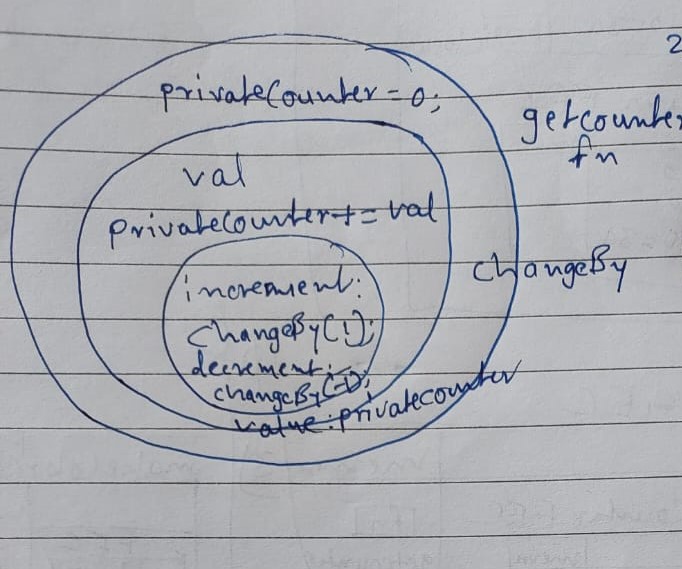 2
privateCounter = 0;
getcounter
fn
val
privateCounter += val
changeBy
increment:
changeBy(1);
decrement:
changeBy(-1);
value: privatecounter